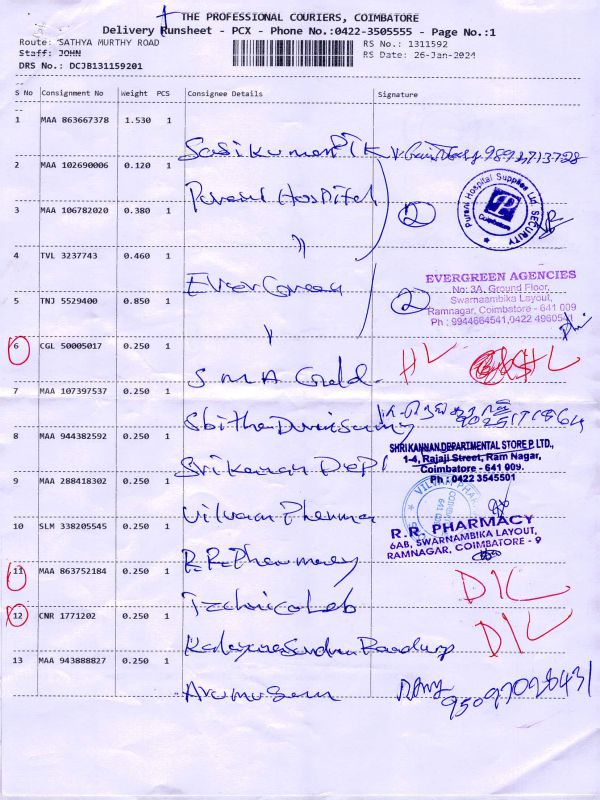 THE PROFESSIONAL COURIERS, COIMBATORE
Delivery Runsheet - PCX - Phone No.:0422-3505555 - Page No.:1
Route: SATHYA MURTHY ROAD RS No.: 1311592
Staff: JOHN RS Date: 26-Jan-2024
DRS No.: DCJB131159201
S No Consignment No Weight PCS Consignee Details Signature
1 MAA 863667378 1.530 1
Sasikumar
2 MAA 102690006 0.120 1
Purani Hospital
Purani Hospital Supplies Ltd SECURITY Coimbatore
3 MAA 106782020 0.380 1
〃 2
4 TVL 3237743 0.460 1
Ever Green
EVERGREEN AGENCIES
No: 3A, Ground Floor,
Swarnaambika Layout,
Ramnagar, Coimbatore - 641 009
Ph : 9944664541,0422 496054
5 TNJ 5529400 0.850 1
2
6 CGL 50005017 0.250 1
SMA Gold HL
7 MAA 107397537 0.250 1
8 MAA 944382592 0.250 1
Sri Kanan Dept
SHRI KANNAN DEPARTMENTAL STORE P. LTD.,
1-4, Rajaji Street, Ram Nagar,
Coimbatore - 641 009.
Ph : 0422 3545501
9 MAA 288418302 0.250 1
Vilvam Pharma
10 SLM 338205545 0.250 1
R.R. Pharmacy
R.R. PHARMACY
6AB, SWARNAMBIKA LAYOUT,
RAMNAGAR, COIMBATORE - 9
11 MAA 863752184 0.250 1
Technico Lab D/L
12 CNR 1771202 0.250 1
D/L
13 MAA 943888827 0.250 1
Arumugam